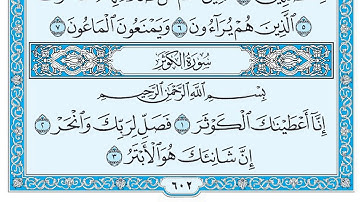 ٱلَّذِينَ هُمْ يُرَآءُونَ ٦ وَيَمْنَعُونَ ٱلْمَاعُونَ ٧
سُورَةُ الكَوْثَرِ
بِسْمِ ٱللَّهِ ٱلرَّحْمَٰنِ ٱلرَّحِيمِ
إِنَّآ أَعْطَيْنَٰكَ ٱلْكَوْثَرَ ١ فَصَلِّ لِرَبِّكَ وَٱنْحَرْ ٢
إِنَّ شَانِئَكَ هُوَ ٱلْأَبْتَرُ ٣
٦٠٢